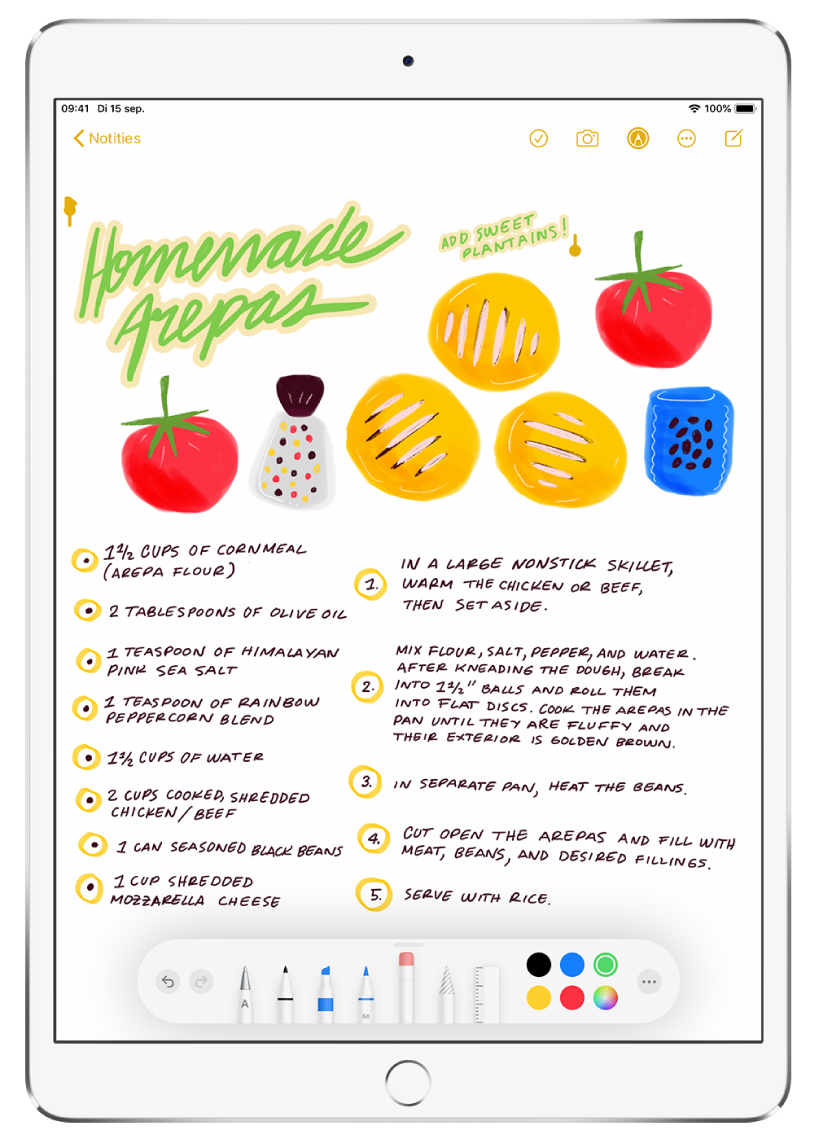 09:41 Di 15 sep.
100%
Notities
Homemade
Arepas
ADD SWEET
PLANTAINS!
1 1/2 CUPS OF CORNMEAL
(AREPA FLOUR)
2 TABLESPOONS OF OLIVE OIL
1 TEASPOON OF HIMALAYAN
PINK SEA SALT
1 TEASPOON OF RAINBOW
PEPPERCORN BLEND
1 1/2 CUPS OF WATER
2 CUPS COOKED, SHREDDED
CHICKEN/BEEF
1 CAN SEASONED BLACK BEANS
1 CUP SHREDDED
MOZZARELLA CHEESE
1. IN A LARGE NONSTICK SKILLET,
WARM THE CHICKEN OR BEEF,
THEN SET ASIDE.
2. MIX FLOUR, SALT, PEPPER, AND WATER.
AFTER KNEADING THE DOUGH, BREAK
INTO 1 1/2" BALLS AND ROLL THEM
INTO FLAT DISCS. COOK THE AREPAS IN THE
PAN UNTIL THEY ARE FLUFFY AND
THEIR EXTERIOR IS GOLDEN BROWN.
3. IN SEPARATE PAN, HEAT THE BEANS.
4. CUT OPEN THE AREPAS AND FILL WITH
MEAT, BEANS, AND DESIRED FILLINGS.
5. SERVE WITH RICE.
A
50